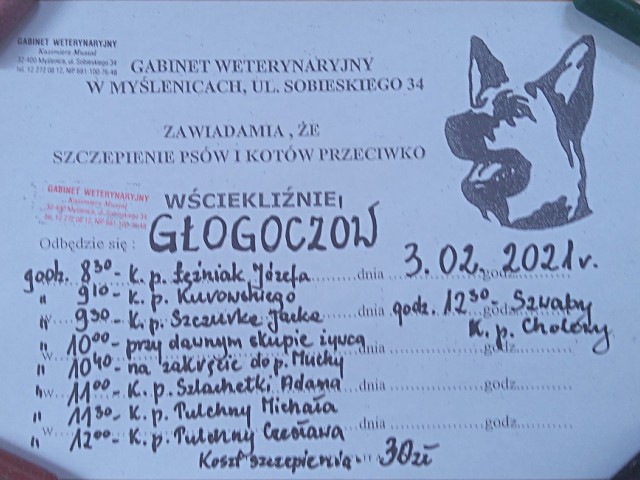 GABINET WETERYNARYJNY
Kazimierz Musiał
32-400 Myślenice, ul. Sobieskiego 34
tel. 12 272 08 12, NIP 681-100-76-48
GABINET WETERYNARYJNY
W MYŚLENICACH, UL. SOBIESKIEGO 34
ZAWIADAMIA , ŻE
SZCZEPIENIE PSÓW I KOTÓW PRZECIWKO
GABINET WETERYNARYJNY
Kazimierz Musiał
32-400 Myślenice, ul. Sobieskiego 34
WŚCIEKLIŹNIE
Odbędzie się : GŁOGOCZÓW
godz. 8 30 - K. p. Łęźniak Józefa dnia 3.02.2021r. godz.
" 9 10 - K. p. Kurowskiego dnia
" 9 30 - K. p. Szczurka Jacka dnia godz. 12 30 - Szwaby
K. p. Cholewy
w " 10 00 - przy dawnym skupie żywca dnia godz.
w " 10 40 - na zakręcie do p. Muchy
w " 11 00 - K. p. Szlachetki Adama dnia godz.
" 11 30 - K. p. Pulchny Michała
w " 12 00 - K. p. Pulchny Czesława dnia godz.
Koszt szczepienia - 30zł